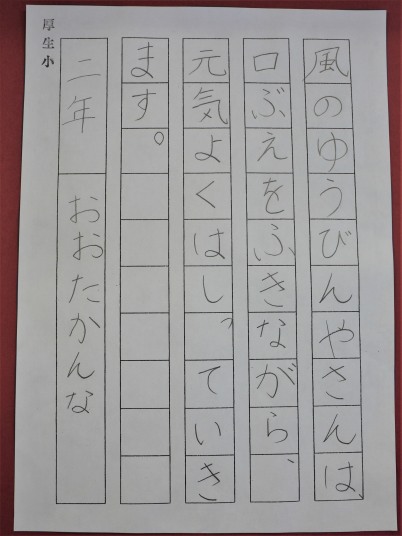 風のゆうびんやさんは、
口ぶえをふきながら、
元気よくはしっていき
ます。
二年
おおたかんな
厚生小